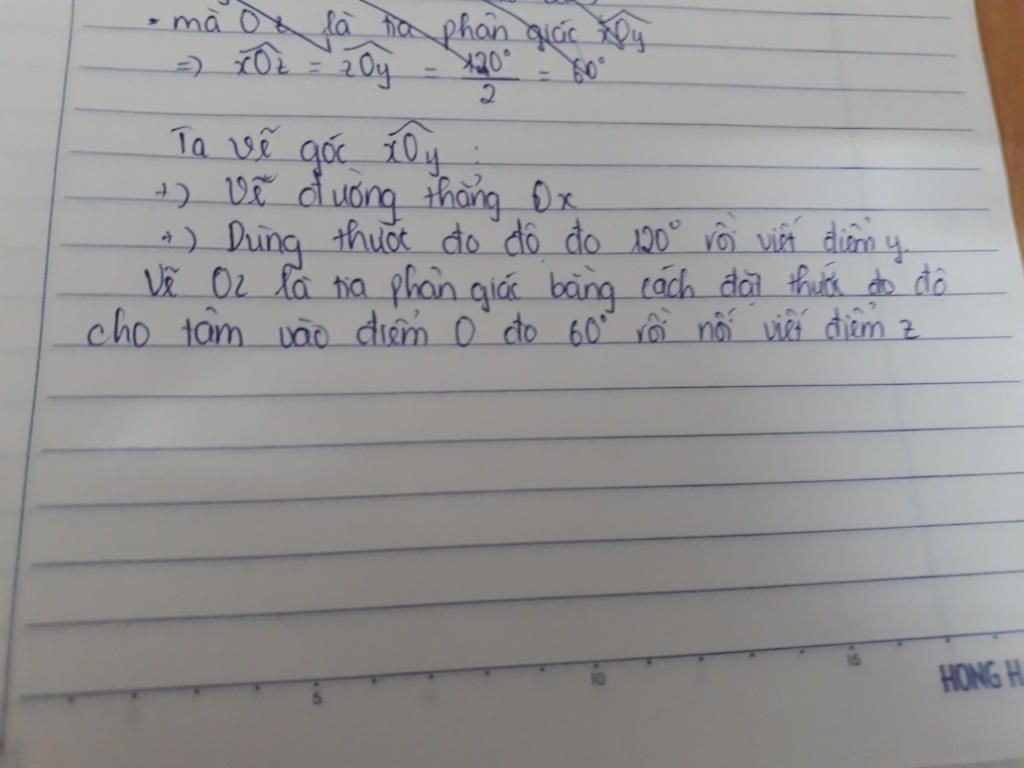 - mà Oz là tia phân giác xOy
=> xOz = zOy = 120° / 2 = 60°
Ta vẽ góc xOy :
+) Vẽ đường thẳng Ox
+) Dùng thước đo độ đo 120° rồi viết điểm y.
Vẽ Oz là tia phân giác bằng cách đặt thước đo độ
cho tâm vào điểm O đo 60° rồi nối viết điểm z
5 10 15
HONG H